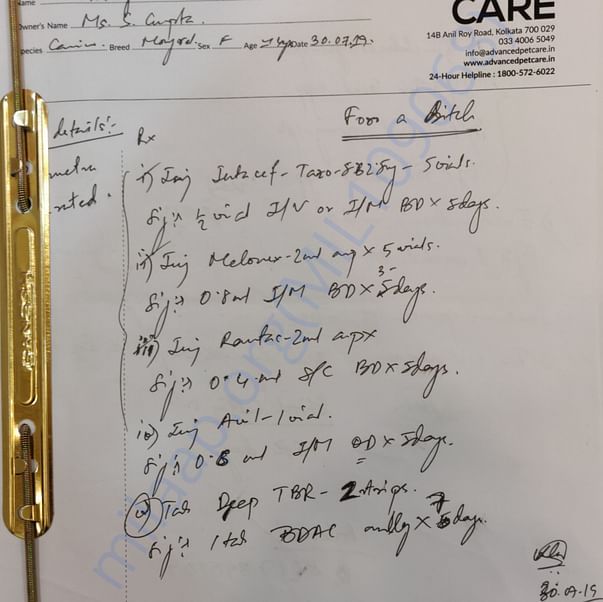 Name
CARE
Owner's Name Ms. S. Gupta.
14B Anil Roy Road, Kolkata 700 029
033 4006 5049
info@advancedpetcare.in
www.advancedpetcare.in
24-Hour Helpline : 1800-572-6022
Species Canine Breed Mongrel Sex F Age Date 30.07.19.
details:-
Rx
For a Bitch
i) Inj Intacef-Tazo - 5 vials.
Sig: 1/2 vial I/V or I/M BD x 5 days.
ii) Inj Melonex-2ml amp x 5 vials.
Sig: 0.8ml I/M BD x 3 days.
iii) Inj Rantac-2ml amp x
Sig: 0.4 ml S/C BD x 5days.
iv) Inj Avil-1 vial.
Sig: ml I/M OD x 5days.
v) Tab TBR- 2 strips.
Sig: 1 tab BDAC orally x 7 days.
30.07.19